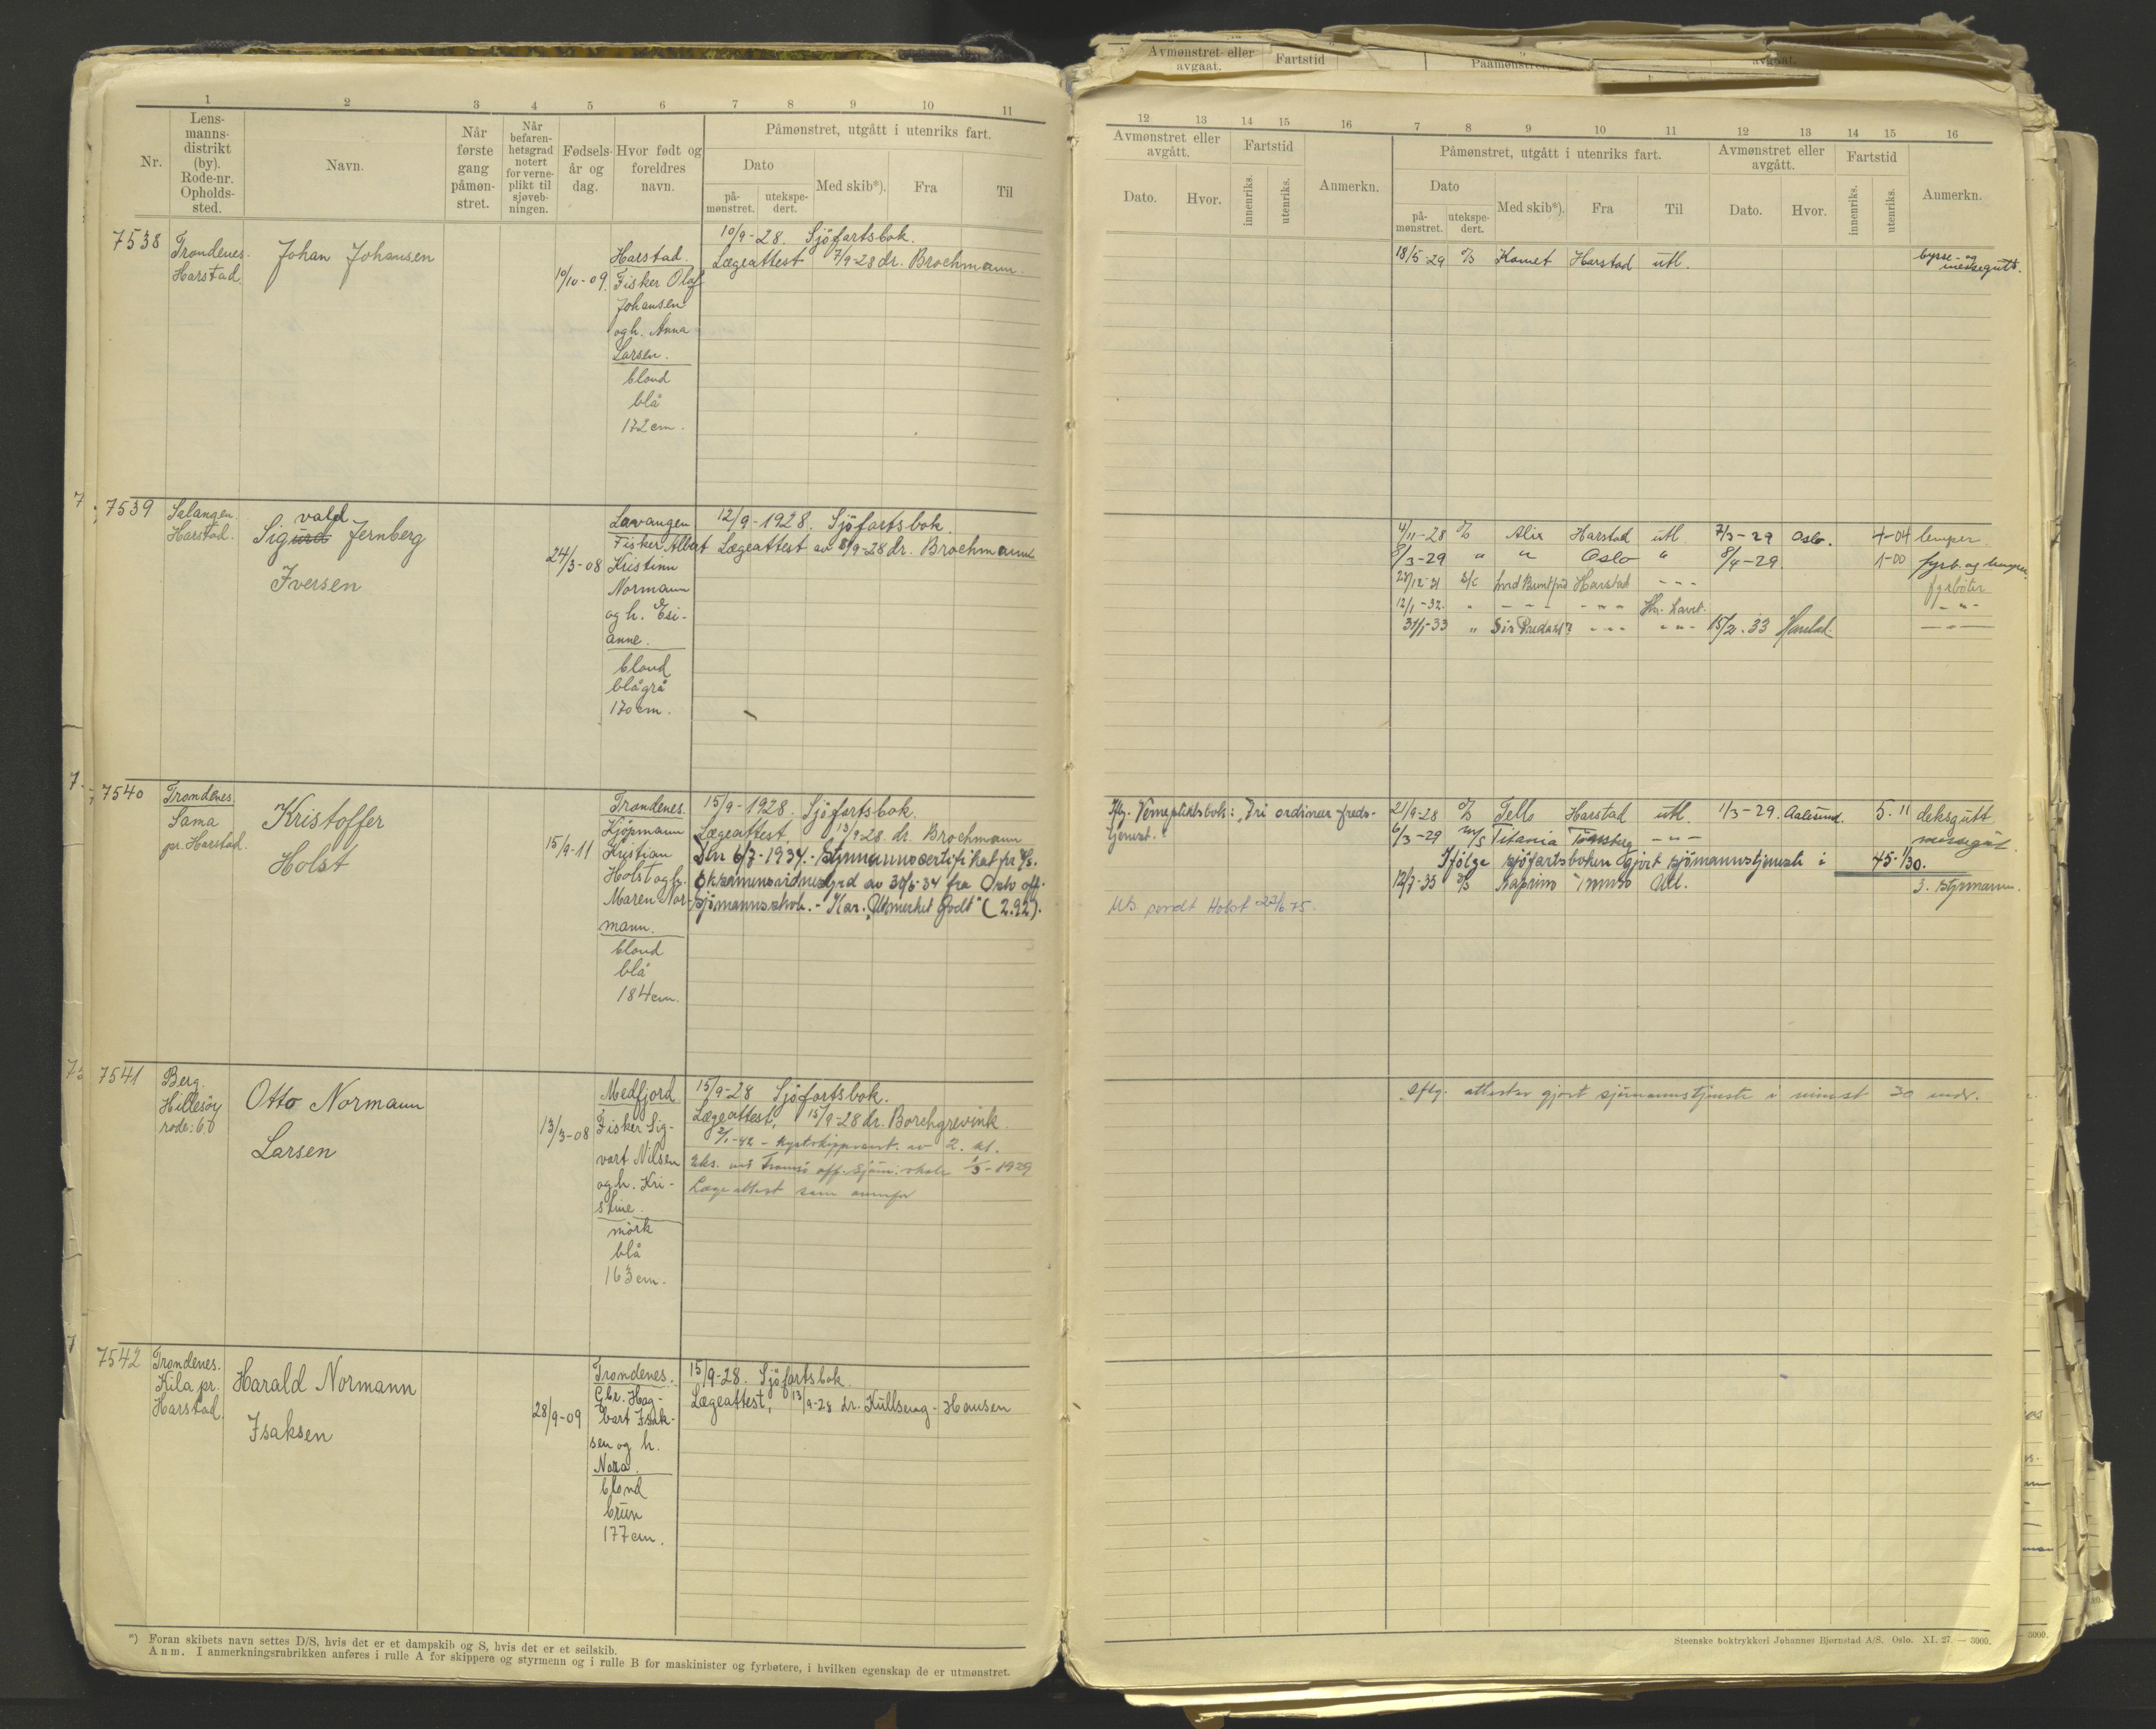 1 2 3 4 5 6 7 8 9 10 11
Nr.
Lens-
manns-
distrikt
(by).
Rode-nr.
Opholds-
sted.
Navn.
Når
første
gang
påmøn-
stret.
Når
befaren-
hetsgrad
notert
for verne-
plikt til
sjøveb-
ningen.
Fødsels-
år og
dag.
Hvor født og
foreldres
navn.
Påmønstret, utgått i utenriks fart.
Dato
på-
mønstret.
utekspe-
dert.
Med skib*).
Fra
Til
7538
Trondenes.
Harstad.
Johan Johansen
10/10-09.
Harstad.
Fisker Olaf
Johansen
og h. Anna
Larsen.
blond
blå
172 cm.
10/9-28. Sjöfartsbok.
Lægeattest 7/9-28 dr. Brochmann.
7539
Salangen.
Harstad.
vald
Sigurd Jernberg
Iversen
24/3-08
Lavangen
Fisker Albert
Kristinn
Normann
og h. Esi-
anne.
blond
blågrå
170 cm.
12/9-1928. Sjöfartsbok.
Lægeattest av 8/9-28 dr. Brochmann
7540
Trondenes.
Sama
pr. Harstad.
Kristoffer
Holst
15/9-11
Trondenes.
Kjöpmann
Kristian
Holst og h.
Maren Nor-
mann.
blond
blå
184 cm.
15/9-1928. Sjöfartsbok.
Lægeattest, 13/9-28 dr. Brochmann
Den 6/7-1934.- Styrmannscertifikat pr
Eksamensvidnesbyrd av 30/5-34 fra Oslo off.
sjömannsskole.- Kar. "Utmerket godt" (2.92).
7541
Berg.
Hillesöy
rode: 6.
Otto Normann
Larsen
13/3-08
Medfjord
Fisker Sig-
vart Nilsen
og h. Kri-
stine.
mörk
blå
163 cm.
15/9-28 Sjöfartsbok.
Lægeattest, 15/9-28 dr. Borchgrevink.
2/1-42 - kystskippercert. av 2. kl.
Eks. ved Tromsö off. sjöm. skole 1/5-1929
Lægeattest som ovenfor
7542
Trondenes.
Kila pr.
Harstad.
Harald Normann
Isaksen
28/9-09
Trondenes.
Gbr. Hag-
bart Isak-
sen og h.
Nora.
blond
brun
177 cm.
15/9-28. Sjöfartsbok.
Lægeattest, 13/9-28 dr. Kullseng-Hansen
*) Foran skibets navn settes D/S, hvis det er et dampskib og S, hvis det er et seilskib.
Anm. I anmerkningsrubrikken anføres i rulle A for skippere og styrmenn og i rulle B for maskinister og fyrbøtere, i hvilken egenskap de er utmønstret.
Avmønstret eller
avgaat.
Fartstid
12 13 14 15 16 7 8 9 10 11 12 13 14 15 16
Avmønstret eller
avgått.
Dato.
Hvor.
Fartstid
innenriks.
utenriks.
Anmerkn.
Påmønstret, utgått i utenriks fart.
Dato
på-
mønstret.
utekspe-
dert.
Med skib*).
Fra
Til
Avmønstret eller
avgått.
Dato.
Hvor.
Fartstid
innenriks.
utenriks.
Anmerkn.
18/5-29 D/S Komet Harstad utl. bysse- og
messegutt.
4/11-28 D/S Alix Harstad utl 7/3-29 Oslo. 4-04 lemper.
8/3-29 " " Oslo " 8/4-29. 1-00 fyrb. og lemper.
Harstad -"- fyrböter
12/1-32. " -"- -"- -"-
31/1-33 " -"- -"- 15/2-33 Harstad. -"-
Ifg. Vernepliktsbok: "Fri ordinær freds-
tjenest."
21/9-28 D/S Tello Harstad utl. 1/3-29. Aalesund. 5-11 deksgutt
6/3-29 M/S Titania Tönsberg -"- messegut.
Ifölge sjöfartsboken gjort sjömannstjeneste i 45-1/30.
12/7-35 D/S Kaprino Tromsö Utl. 3. styrmann.
Uts. sendt Holst 23/6 75.
Iflg. attester gjort sjömannstjeneste i minst 30 mdr.
Steenske boktrykkeri Johannes Bjørnstad A/S. Oslo. XI. 27. — 3000.